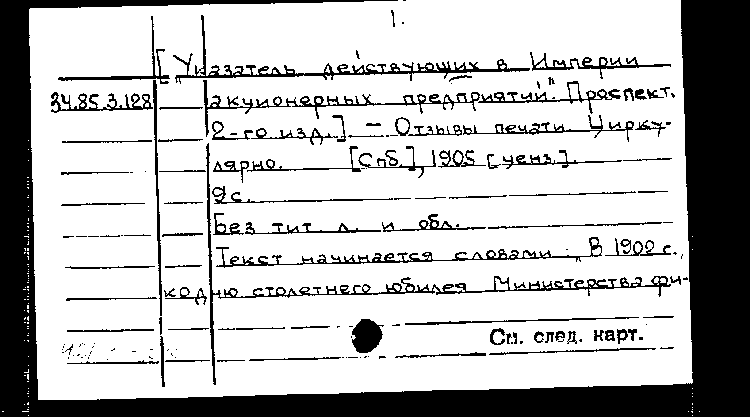 1.
["Указатель действующих в Империи
34.85.3.128 акционерных предприятий". Проспект.
2-го изд.]. - Отзывы печати. Цирку-
лярно. [Спб.], 1905 [ценз.].
9с.
Без тит. л. и обл.
Текст начинается словами: "В 1902 г.,
ко дню столетнего юбилея Министерства фи-
См. след. карт.